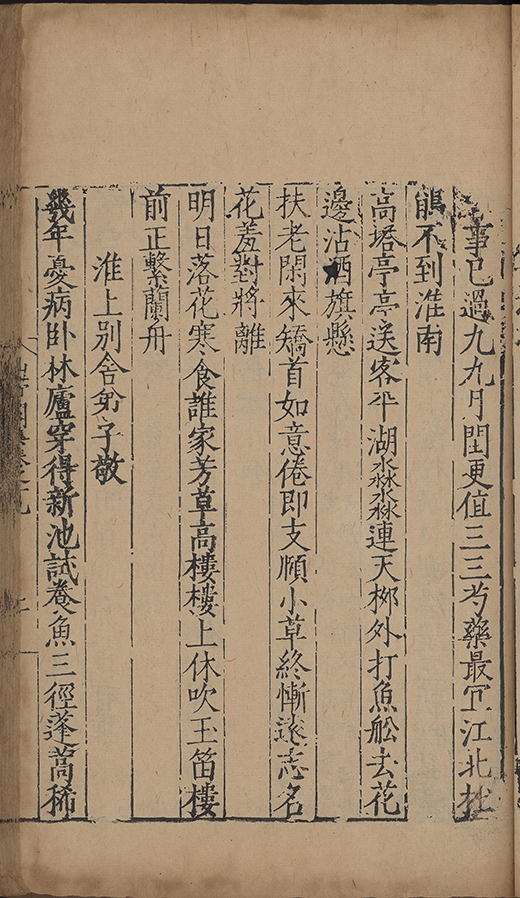 事已過九九月閏更值三三芍藥最宜江北
鵑不到淮南
高塔亭亭送客平湖淼淼連天桞外打魚舩去花
邊沽酒旗懸
扶老閑來矯首如意倦即支頤小草終慚遠志名
花羞對將離
明日落花寒食誰家芳草高樓樓上休吹玉笛樓
前正繫蘭舟
淮上别舍弟子敬
幾年憂病卧林廬穿得新池試養魚三徑蓬蒿稀